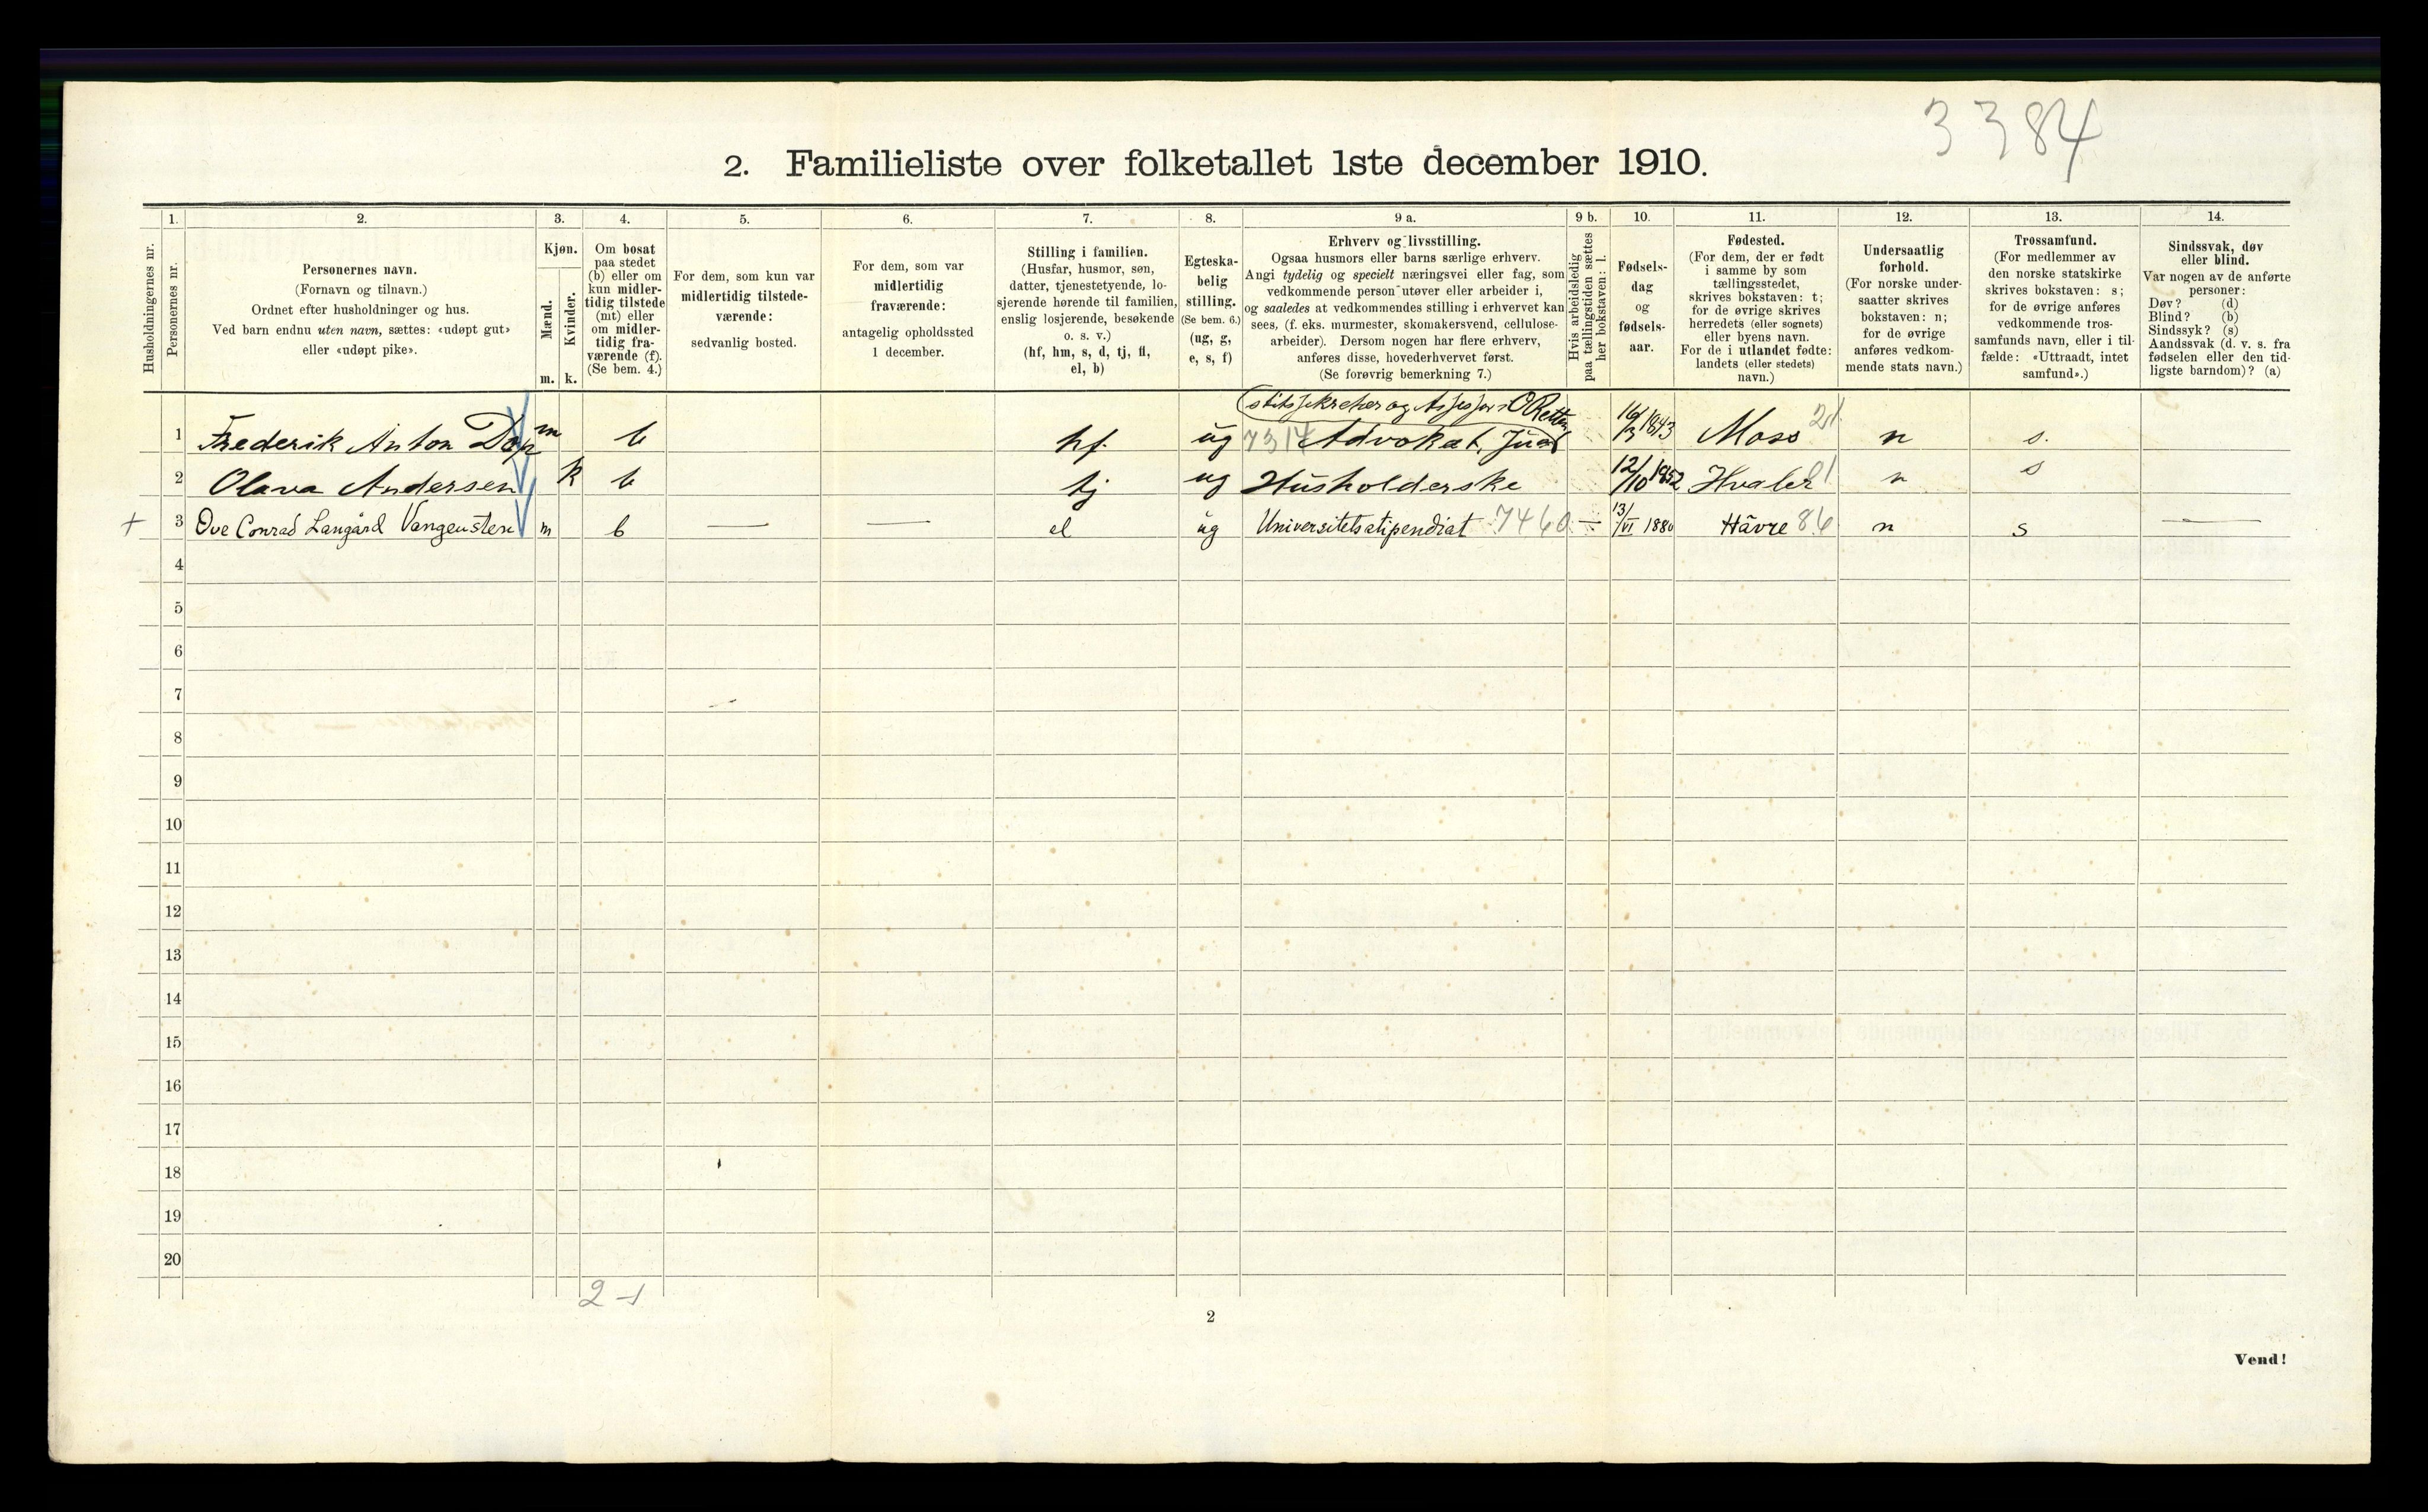 3384
2. Familieliste over folketallet 1ste december 1910.
Husholdningernes nr.
1.
Personernes nr.
2.
Personernes navn.
(Fornavn og tilnavn.)
Ordnet efter husholdninger og hus.
Ved barn endnu uten navn, sættes: «udøpt gut»
eller «udøpt pike».
3.
Kjøn.
Mænd.
Kvinder.
m. k.
4.
Om bosat
paa stedet
(b) eller om
kun midler-
tidig tilstede
(mt) eller
om midler-
tidig fra-
værende (f).
(Se bem. 4.)
5.
For dem, som kun var
midlertidig tilstede-
værende:
sedvanlig bosted.
6.
For dem, som var
midlertidig
fraværende:
antagelig opholdssted
1 december.
7.
Stilling i familien.
(Husfar, husmor, søn,
datter, tjenestetyende, lo-
sjerende hørende til familien,
enslig losjerende, besøkende
o. s. v.)
(hf, hm, s, d, tj, fl,
el, b)
8.
Egteska-
belig
stilling.
(Se bem. 6.)
(ug, g,
e, s, f)
9 a.
Erhverv og livsstilling.
Ogsaa husmors eller barns særlige erhverv.
Angi tydelig og specielt næringsvei eller fag, som
vedkommende person utøver eller arbeider i,
og saaledes at vedkommendes stilling i erhvervet kan
sees, (f. eks. murmester, skomakersvend, cellulose-
arbeider). Dersom nogen har flere erhverv,
anføres disse, hovederhvervet først.
(Se forøvrig bemerkning 7.)
9 b.
Hvis arbeidsledig
paa tællingstiden sættes
her bokstaven: l.
10.
Fødsels-
dag
og
fødsels-
aar.
11.
Fødested.
(For dem, der er født
i samme by som
tællingsstedet,
skrives bokstaven: t;
for de øvrige skrives
herredets (eller sognets)
eller byens navn.
For de i utlandet fødte:
landets (eller stedets)
navn.)
12.
Undersaatlig
forhold.
(For norske under-
saatter skrives
bokstaven: n;
for de øvrige
anføres vedkom-
mende stats navn.)
13.
Trossamfund.
(For medlemmer av
den norske statskirke
skrives bokstaven: s;
for de øvrige anføres
vedkommende tros-
samfunds navn, eller i til-
fælde: «Uttraadt, intet
samfund».)
14.
Sindssvak, døv
eller blind.
Var nogen av de anførte
personer:
Døv? (d)
Blind? (b)
Sindssyk? (s)
Aandssvak (d. v. s. fra
fødselen eller den tid-
ligste barndom)? (a)
1 Frederik Anton Dop m b hf. ug 7317 Advokat, 16/3 1843 Moss 21 n s.
2 Olava Andersen k b tj ug Husholderske 12/10 1852 Hvaler 1 n s
+ 3 Ove Conrad Langård Vangensten m b — — el ug Universitetsstipendiat 7460 — 13/VI 1880 Håvre 86 n s —
4
5
6
7
8
9
10
11
12
13
14
15
16
17
18
19
20
2 - 1
2
Vend!